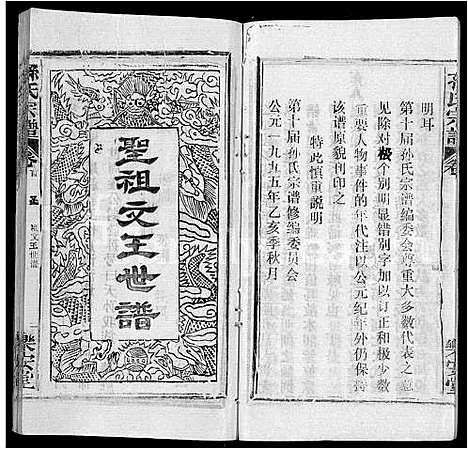 明耳
第十届孙氏宗谱编委会尊重大多数代表之意
见除对极个别明显错别字加以订正和极少数
重要人物事件的年代注以公元纪年外仍保持
该谱原貌刊印之
特此慎重説明
第十届孙氏宗谱修编委员会
公元一九九五年乙亥季秋月
聖祖文王世譜
孫氏宗譜
文王世譜
樂安堂